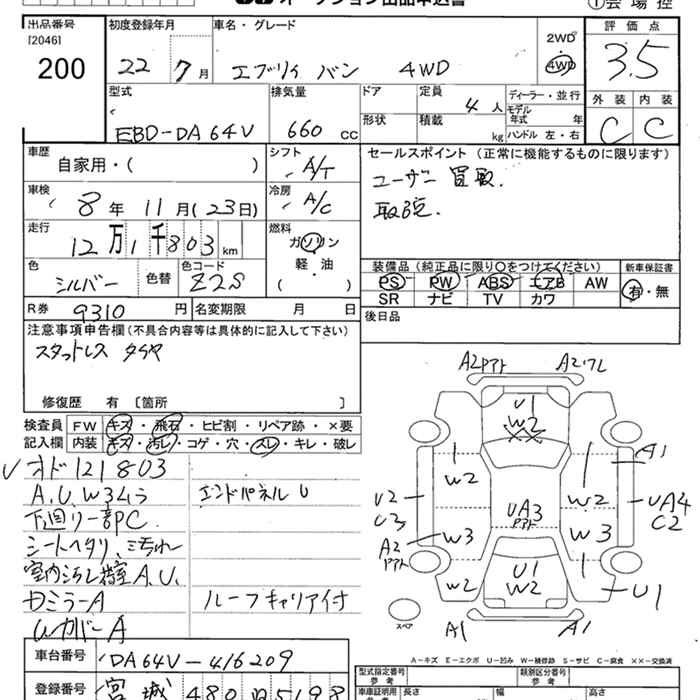 オークション出品申込書
①会場控
出品番号 [2046] 200
初度登録年月 22 7月
車名・グレード エブリィ バン 4WD
2WD 4WD
評価点 3.5
外装 内装 C C
型式 EBD-DA64V
排気量 660 cc
ドア
形状
定員 4人
積載 kg
ディーラー・並行
モデル年式 年
ハンドル 左・右
車歴 自家用・( )
シフト A/T
車検 8年 11月(23日)
冷房 A/C
走行 12万1千803km
燃料 ガソリン 軽・油 ( )
色 シルバー 色替
色コード Z2S
R券 9310円
名変期限 月 日
セールスポイント(正常に機能するものに限ります)
ユーザー買取.
取説.
装備品(純正品に限り○をつけてください)
PS PW ABS エアB AW
SR ナビ TV カワ
新車保証書 有・無
後日品
注意事項申告欄(不具合内容等は具体的に記入して下さい)
スタッドレス タイヤ
修復歴 有 [箇所 ]
検査員記入欄
FW キズ・飛石・ヒビ割・リペア跡・×要
内装 キズ・汚レ・コゲ・穴・スレ・キレ・破レ
オド121803
A.U.W34ラ
エンドパネルU
下廻り一部PC
シートヘタリ、汚れ
室内汚レ 荷室A.U.
ドミラーA
ルーフキャリア付
LカバーA
A2アト A2ワレ
U1
W2
XX
A1
W2 W2
U2 U3
UA3
アト
UA4
C2
W3 W3
A2
アト
W2
U1
W2
U1
スペア
A1 A1
A-キズ E-エクボ U-凹み W-補修跡 S-サビ C-腐食 ××-交換済
車台番号 DA64V-416209
登録番号 宮城 480
型式指定番号 参考
類別区分番号 参考
車庫証明用 参考
長
幅
高